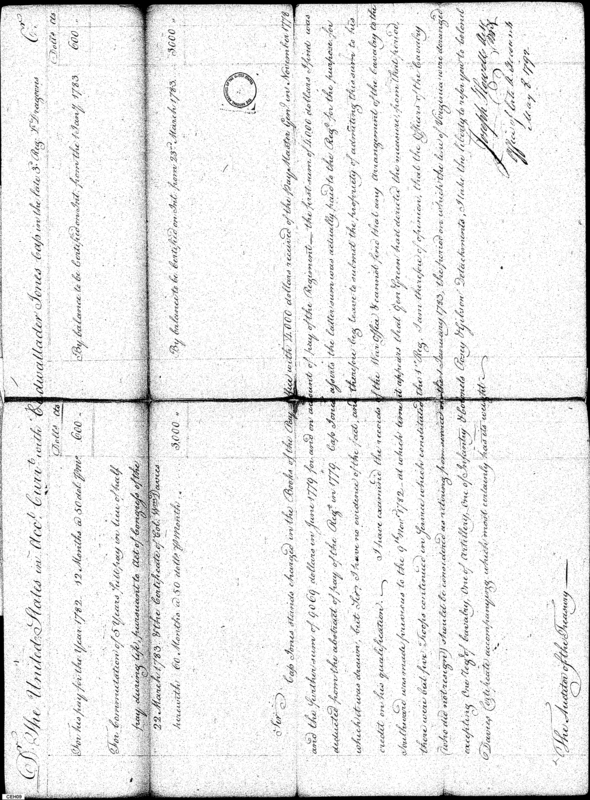 Dr. The United States in Acct. Currt. with Cadwallader Jones Capt. in the late 3d. Reg. Lt. Dragoons Cr.
Dolls cts
Dolls cts
For his pay for the Year 1782 12 Months @ 50 doll. Pr. Mo. 600 "
By balance to be Certified on Int. from the 1 Jany. 1783. 600 "
For Commutation of 5 Years full pay in lieu of half
pay during life, pursuant to Act of Congress of the
22 March 1783 & the Certificate of Col. Wm. Davies
herewith 60 Months @ 50 doll. Pr. Month. 3,000 "
By balance to be Certified on Int. from 23d. March 1783. 3000 "
Sir
Capt. Jones stands charged in the Books of the Pay Office with 4,000 dollars received of the Pay Master Genl. in November 1778
and the further sum of 9,069 dollars in June 1779 for and on account of pay of the Regiment — the first sum of 4,000 dollars I find was
deducted from the abstract of pay of the Regt. in 1779. Capt. Jones asserts the latter sum was actually paid to the Regt. for the purpose for
which it was drawn; but Sir, I have no evidence of the fact, and therefore beg leave to submit the propriety of admitting this sum to his
credit on his qualification — I have examined the records of the War Office & cannot find that any arrangement of the Cavalry to the
Southward was made previous to the 9th. Novr. 1782. at which time it appears that Genl. Green had directed the measure; from that period,
there were but five Troops continued in service which constituted the 1st. Reg. I am therefore of opinion, that the Officers of the Cavalry
(who did not resign) should be considered as retiring from service on the 1st January 1783, the period on which the line of Virginia was deranged
excepting One Regt. of Cavalry, One of Artillery, One of Infantry & Harmits Posey & Gibson Detachments, I take the liberty to refer you to Colonel
Davies Certificate accompanying which most certainly has its weight —
Joseph Howell
Office of
May 8. 1792
The Auditor of the Treasury —
CEH09